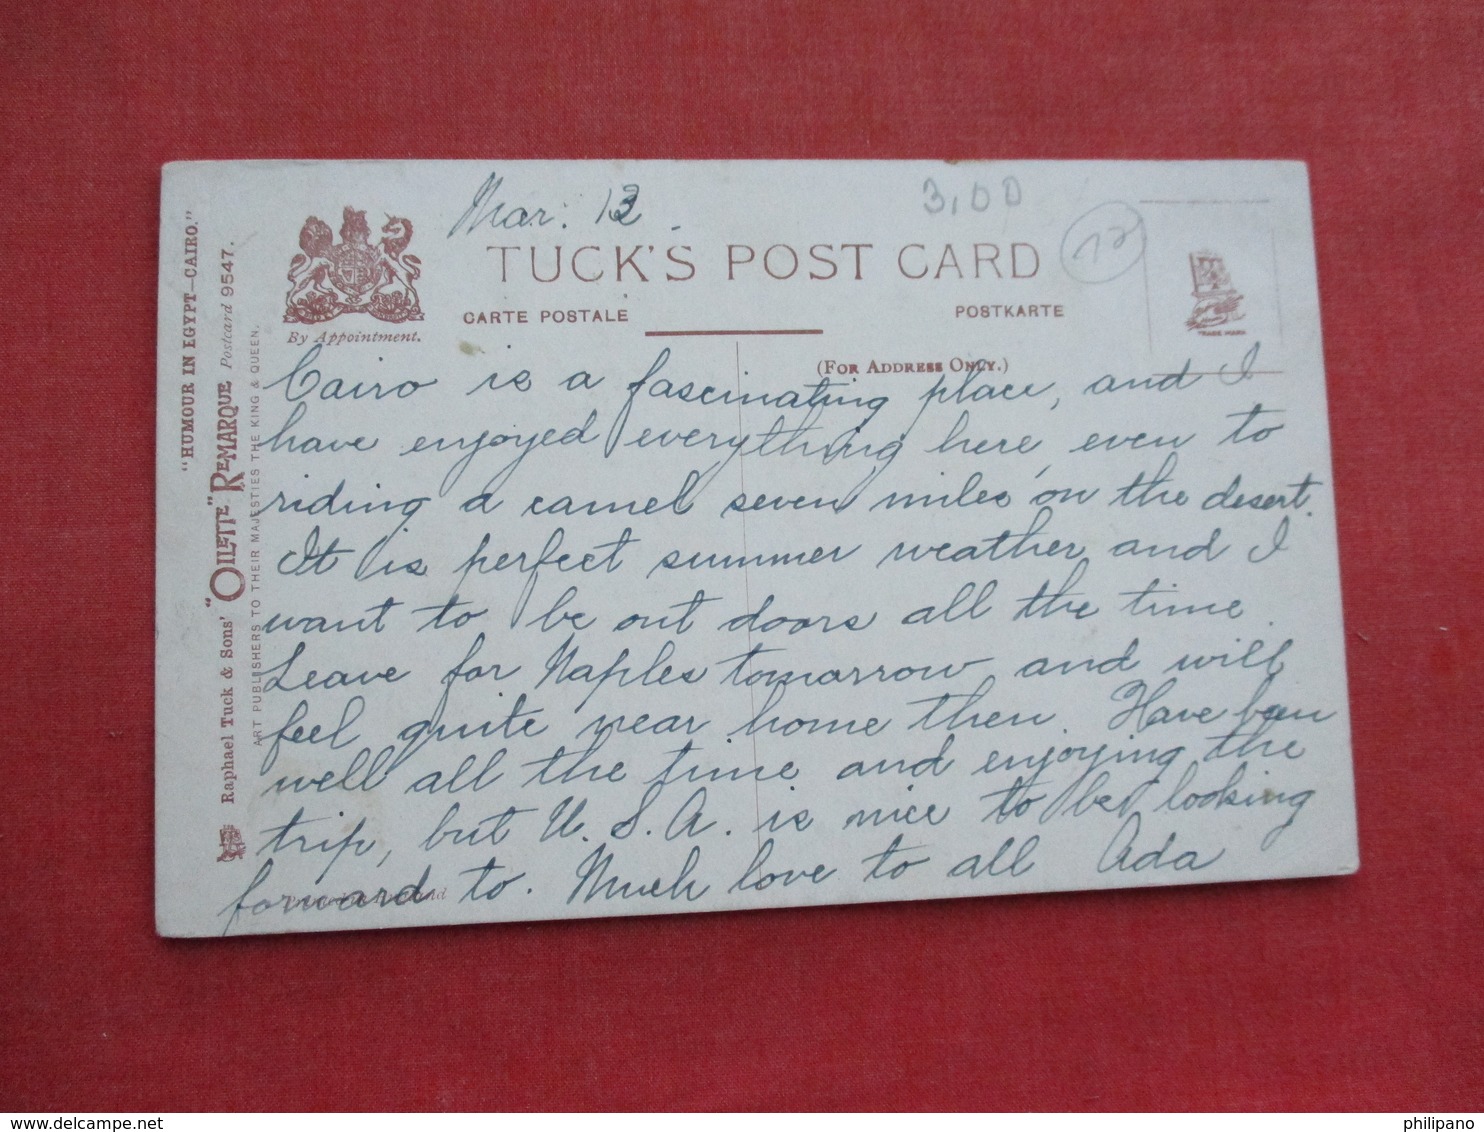 Mar. 12.
3,00
12
TUCK'S POST CARD
CARTE POSTALE
POSTKARTE
By Appointment.
(FOR ADDRESS ONLY.)
TRADE MARK
"HUMOUR IN EGYPT—CAIRO."
Raphael Tuck & Sons' "OILETTE" REMARQUE Postcard 9547.
ART PUBLISHERS TO THEIR MAJESTIES THE KING & QUEEN.
Cairo is a fascinating place, and I
have enjoyed everything here, even to
riding a camel seven miles on the desert.
It is perfect summer weather and I
want to be out doors all the time.
Leave for Naples tomorrow and will
feel quite near home then. Have been
well all the time and enjoying the
trip, but U.S.A. is nice to be looking
forward to. Much love to all Ada
delcampe.net
philipano